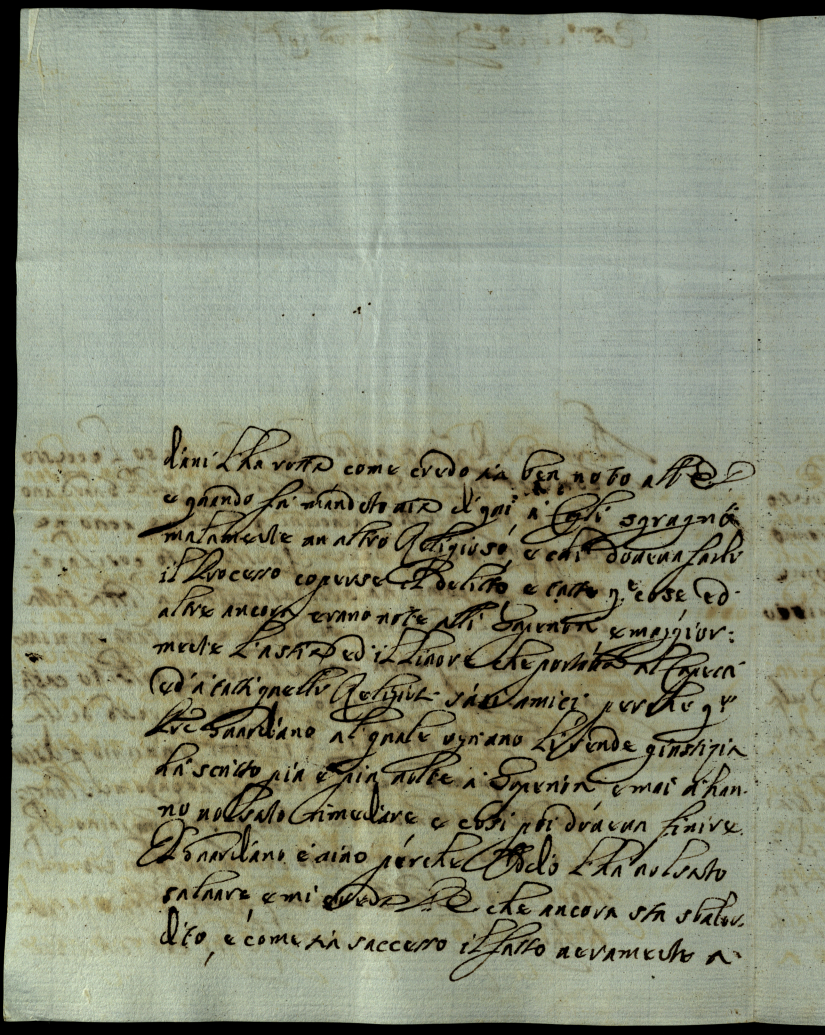 diani l'ha rotta come credo sia ben noto all'
e quando fu mandato via di qui à Cogli sgragnò
malamente un altro Religioso, e chi doveva farli
il Processo coperse il delitto e tutte q.te cose ed
altre ancora erano note alli Superiori e maggior:
mente l'astio ed il livore che portava al
ed à tutti quelli Religiosi suoi amici perche q.to
Pre Guardiano al quale ogniuno li rende giustizia
hà scritto più e più volte à Superiori e mai ci han:
no volsuto rimediare e così poi doveva finire.
Il Guardiano è vivo perche Iddio l'hà volsuto
salvare e mi creda che ancora sta sbalor:
dito, e come sia successo il fatto veramente a